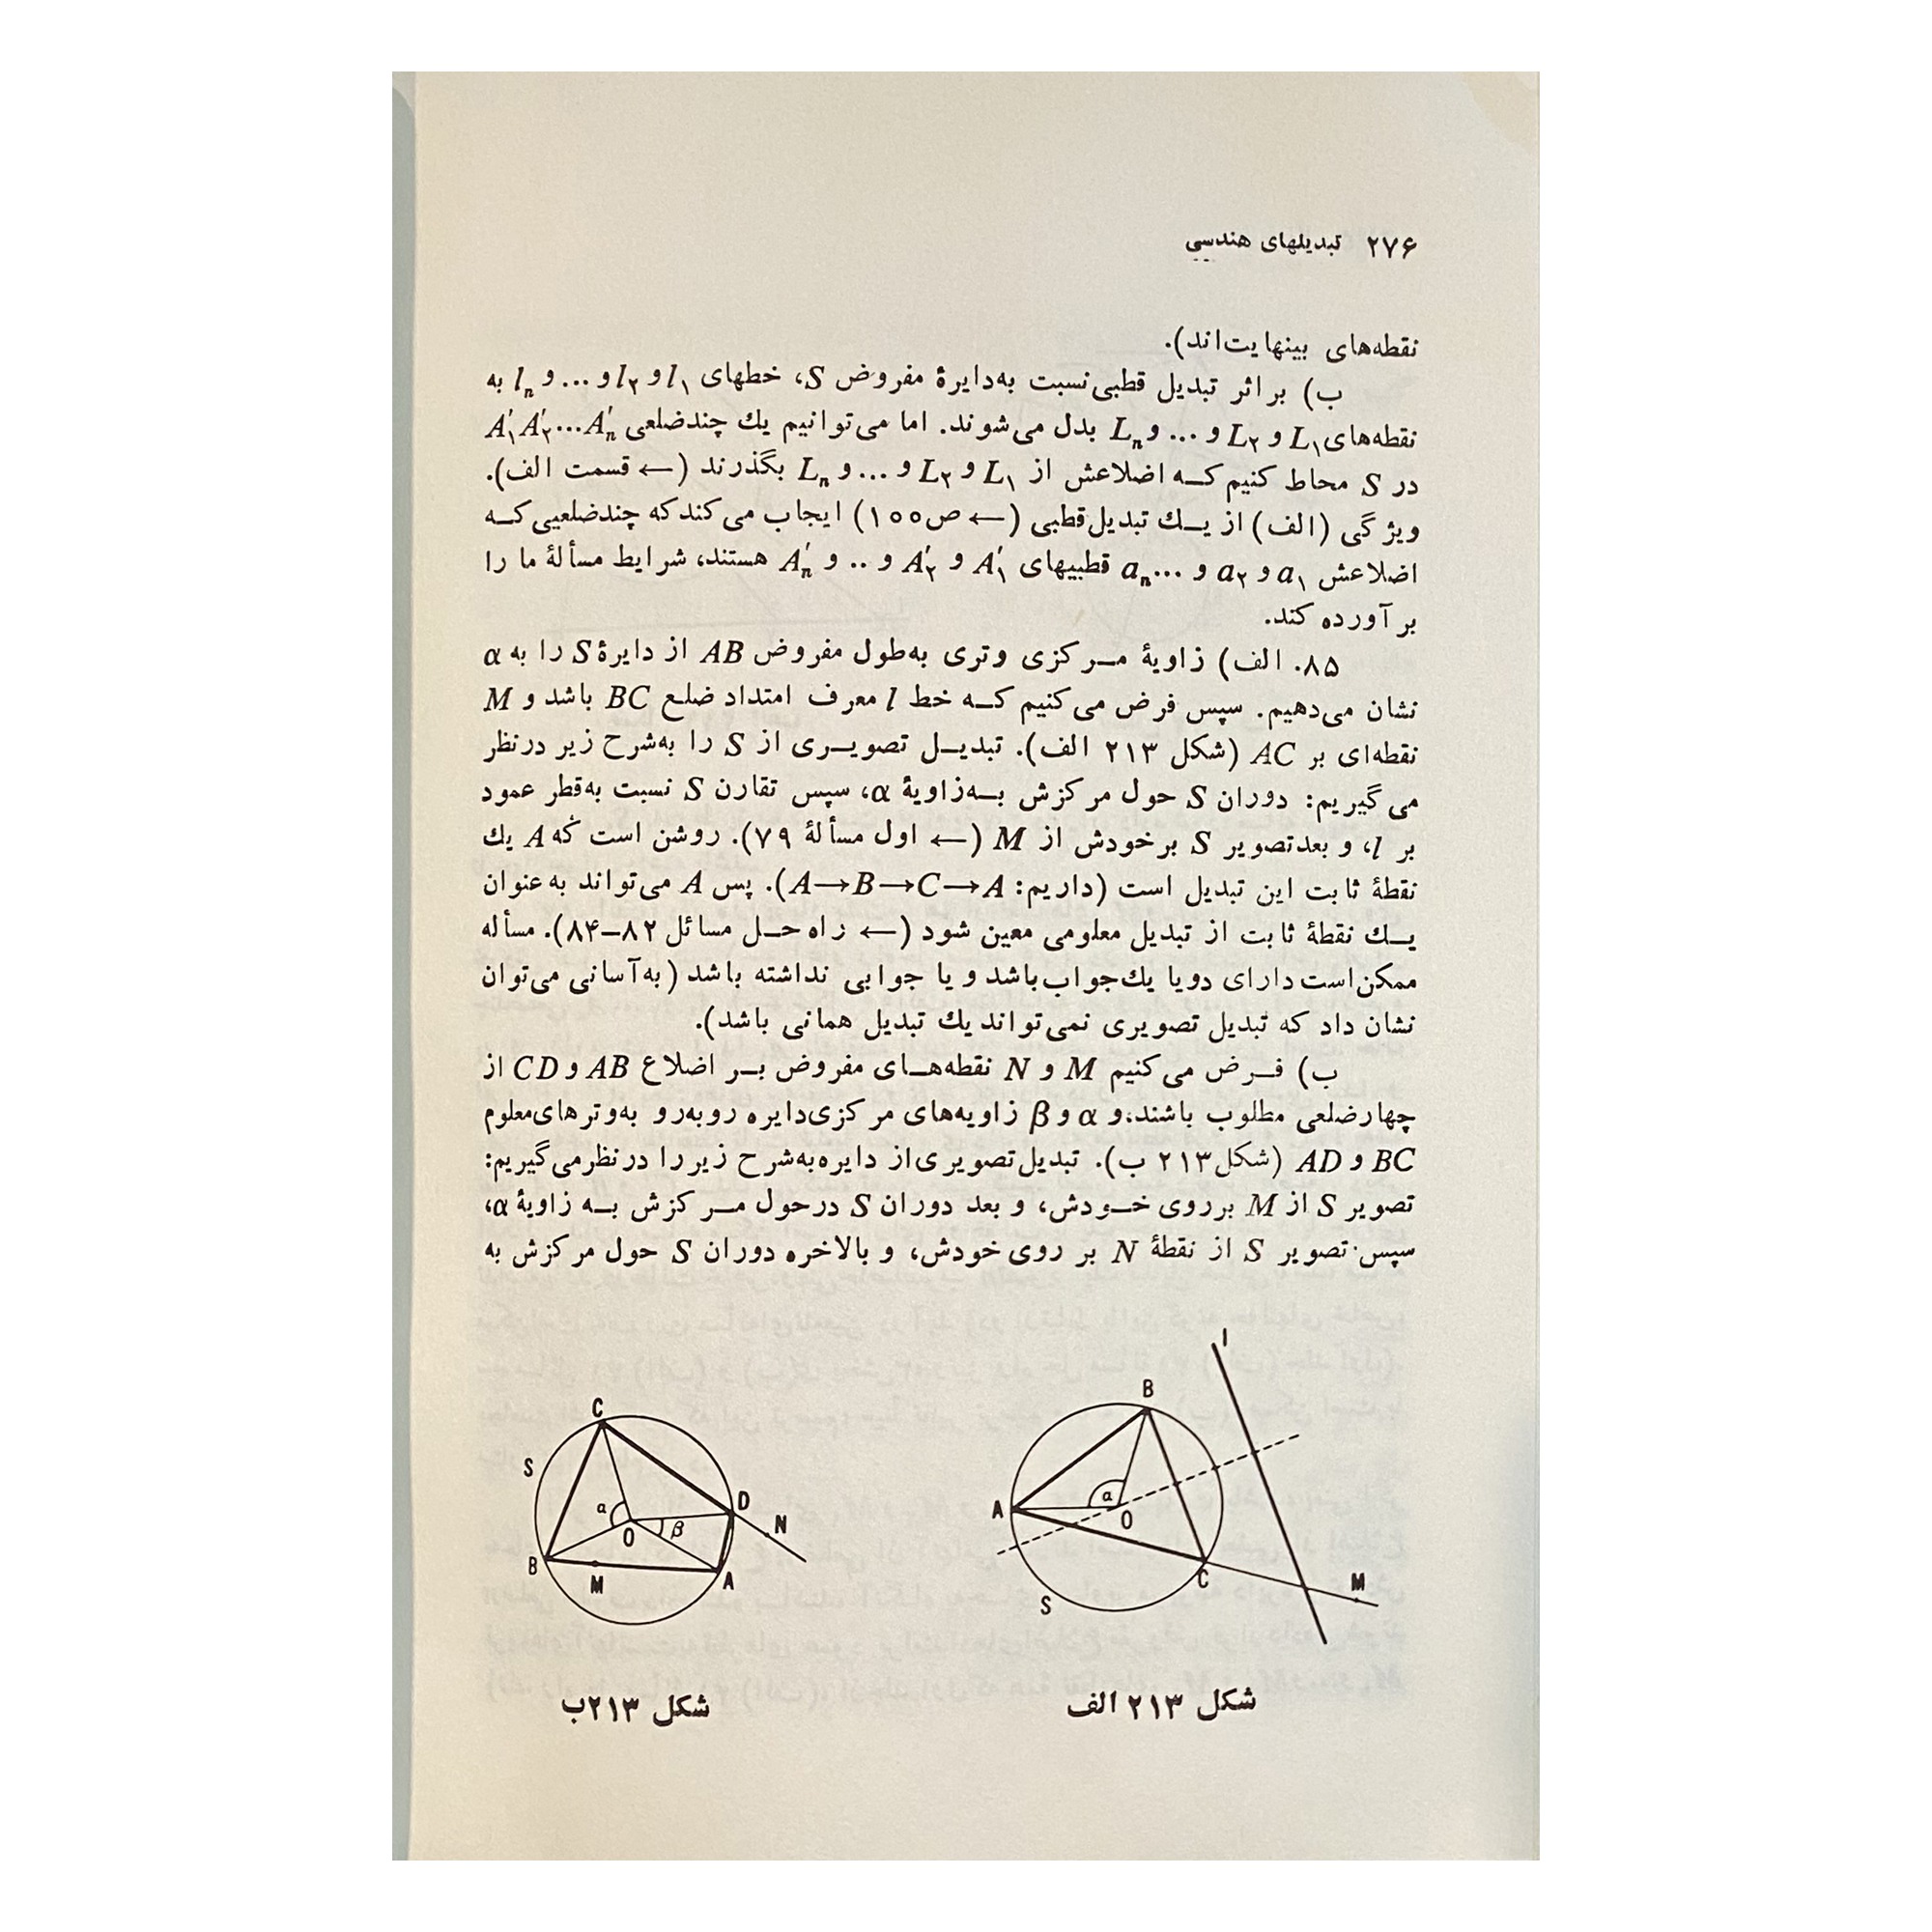 ۲۷۶ تبدیلهای هندسی
نقطه‌های بینهایت‌اند).
ب) بر اثر تبدیل قطبی نسبت به‌دایرهٔ مفروض S، خطهای l₁ و l₂ و ... و lₙ به
نقطه‌های L₁ و L₂ و ... و Lₙ بدل می‌شوند. اما می‌توانیم یك چندضلعی A′₁A′₂...A′ₙ
در S محاط کنیم کـه اضلاعش از L₁ و L₂ و ... و Lₙ بگذرند (← قسمت الف).
ویژگی (الف) از یـك تبدیل‌قطبی (← ص۱۰۰) ایجاب می‌کندکه چندضلعیی‌کـه
اضلاعش a₁ و a₂ و ...aₙ قطبیهای A′₁ و A′₂ و .. و A′ₙ هستند، شرایط مسألهٔ ما را
برآورده کند.
۸۵. الف) زاویهٔ مـرکزی وتری به‌طول مفروض AB از دایرهٔ S را به α
نشان می‌دهیم. سپس فرض می‌کنیم کـه خط l معرف امتداد ضلع BC باشد و M
نقطه‌ای بر AC (شکل ۲۱۳ الف). تبدیـل تصویـری از S را به‌شرح زیر درنظر
می‌گیریم: دوران S حول مرکزش بـه‌زاویهٔ α، سپس تقارن S نسبت به‌قطر عمود
بر l، و بعدتصویر S برخودش از M (← اول مسألهٔ ۷۹). روشن است که A یك
نقطهٔ ثابت این تبدیل است (داریم: A→B→C→A). پس A می‌تواند به‌عنوان
یـك نقطهٔ ثابت از تبدیل معلومی معین شود (← راه حـل مسائل ۸۲–۸۴). مسأله
ممکن‌است دارای دویا یك‌جواب‌باشد و یا جوابی نداشته باشد (به‌آسانی می‌توان
نشان داد که تبدیل تصویری نمی‌تواند یك تبدیل همانی باشد).
ب) فـرض می‌کنیم M و N نقطه‌هـای مفروض بـر اضلاع AB و CD از
چهارضلعی مطلوب باشند، و α و β زاویه‌های مرکزی‌دایره روبه‌رو به‌وترهای‌معلوم
BC و AD (شکل۲۱۳ ب). تبدیل‌تصویری‌از دایره‌به‌شرح زیر را درنظرمی‌گیریم:
تصویر S از M برروی خـودش، و بعد دوران S درحول مـرکزش بـه زاویهٔ α،
سپس تصویر S از نقطهٔ N بر روی خودش، و بالاخره دوران S حول مرکزش به
C
S
α
O
β
D
N
B
M
A
شکل ۲۱۳ب
l
B
A
α
O
C
M
S
شکل ۲۱۳ الف